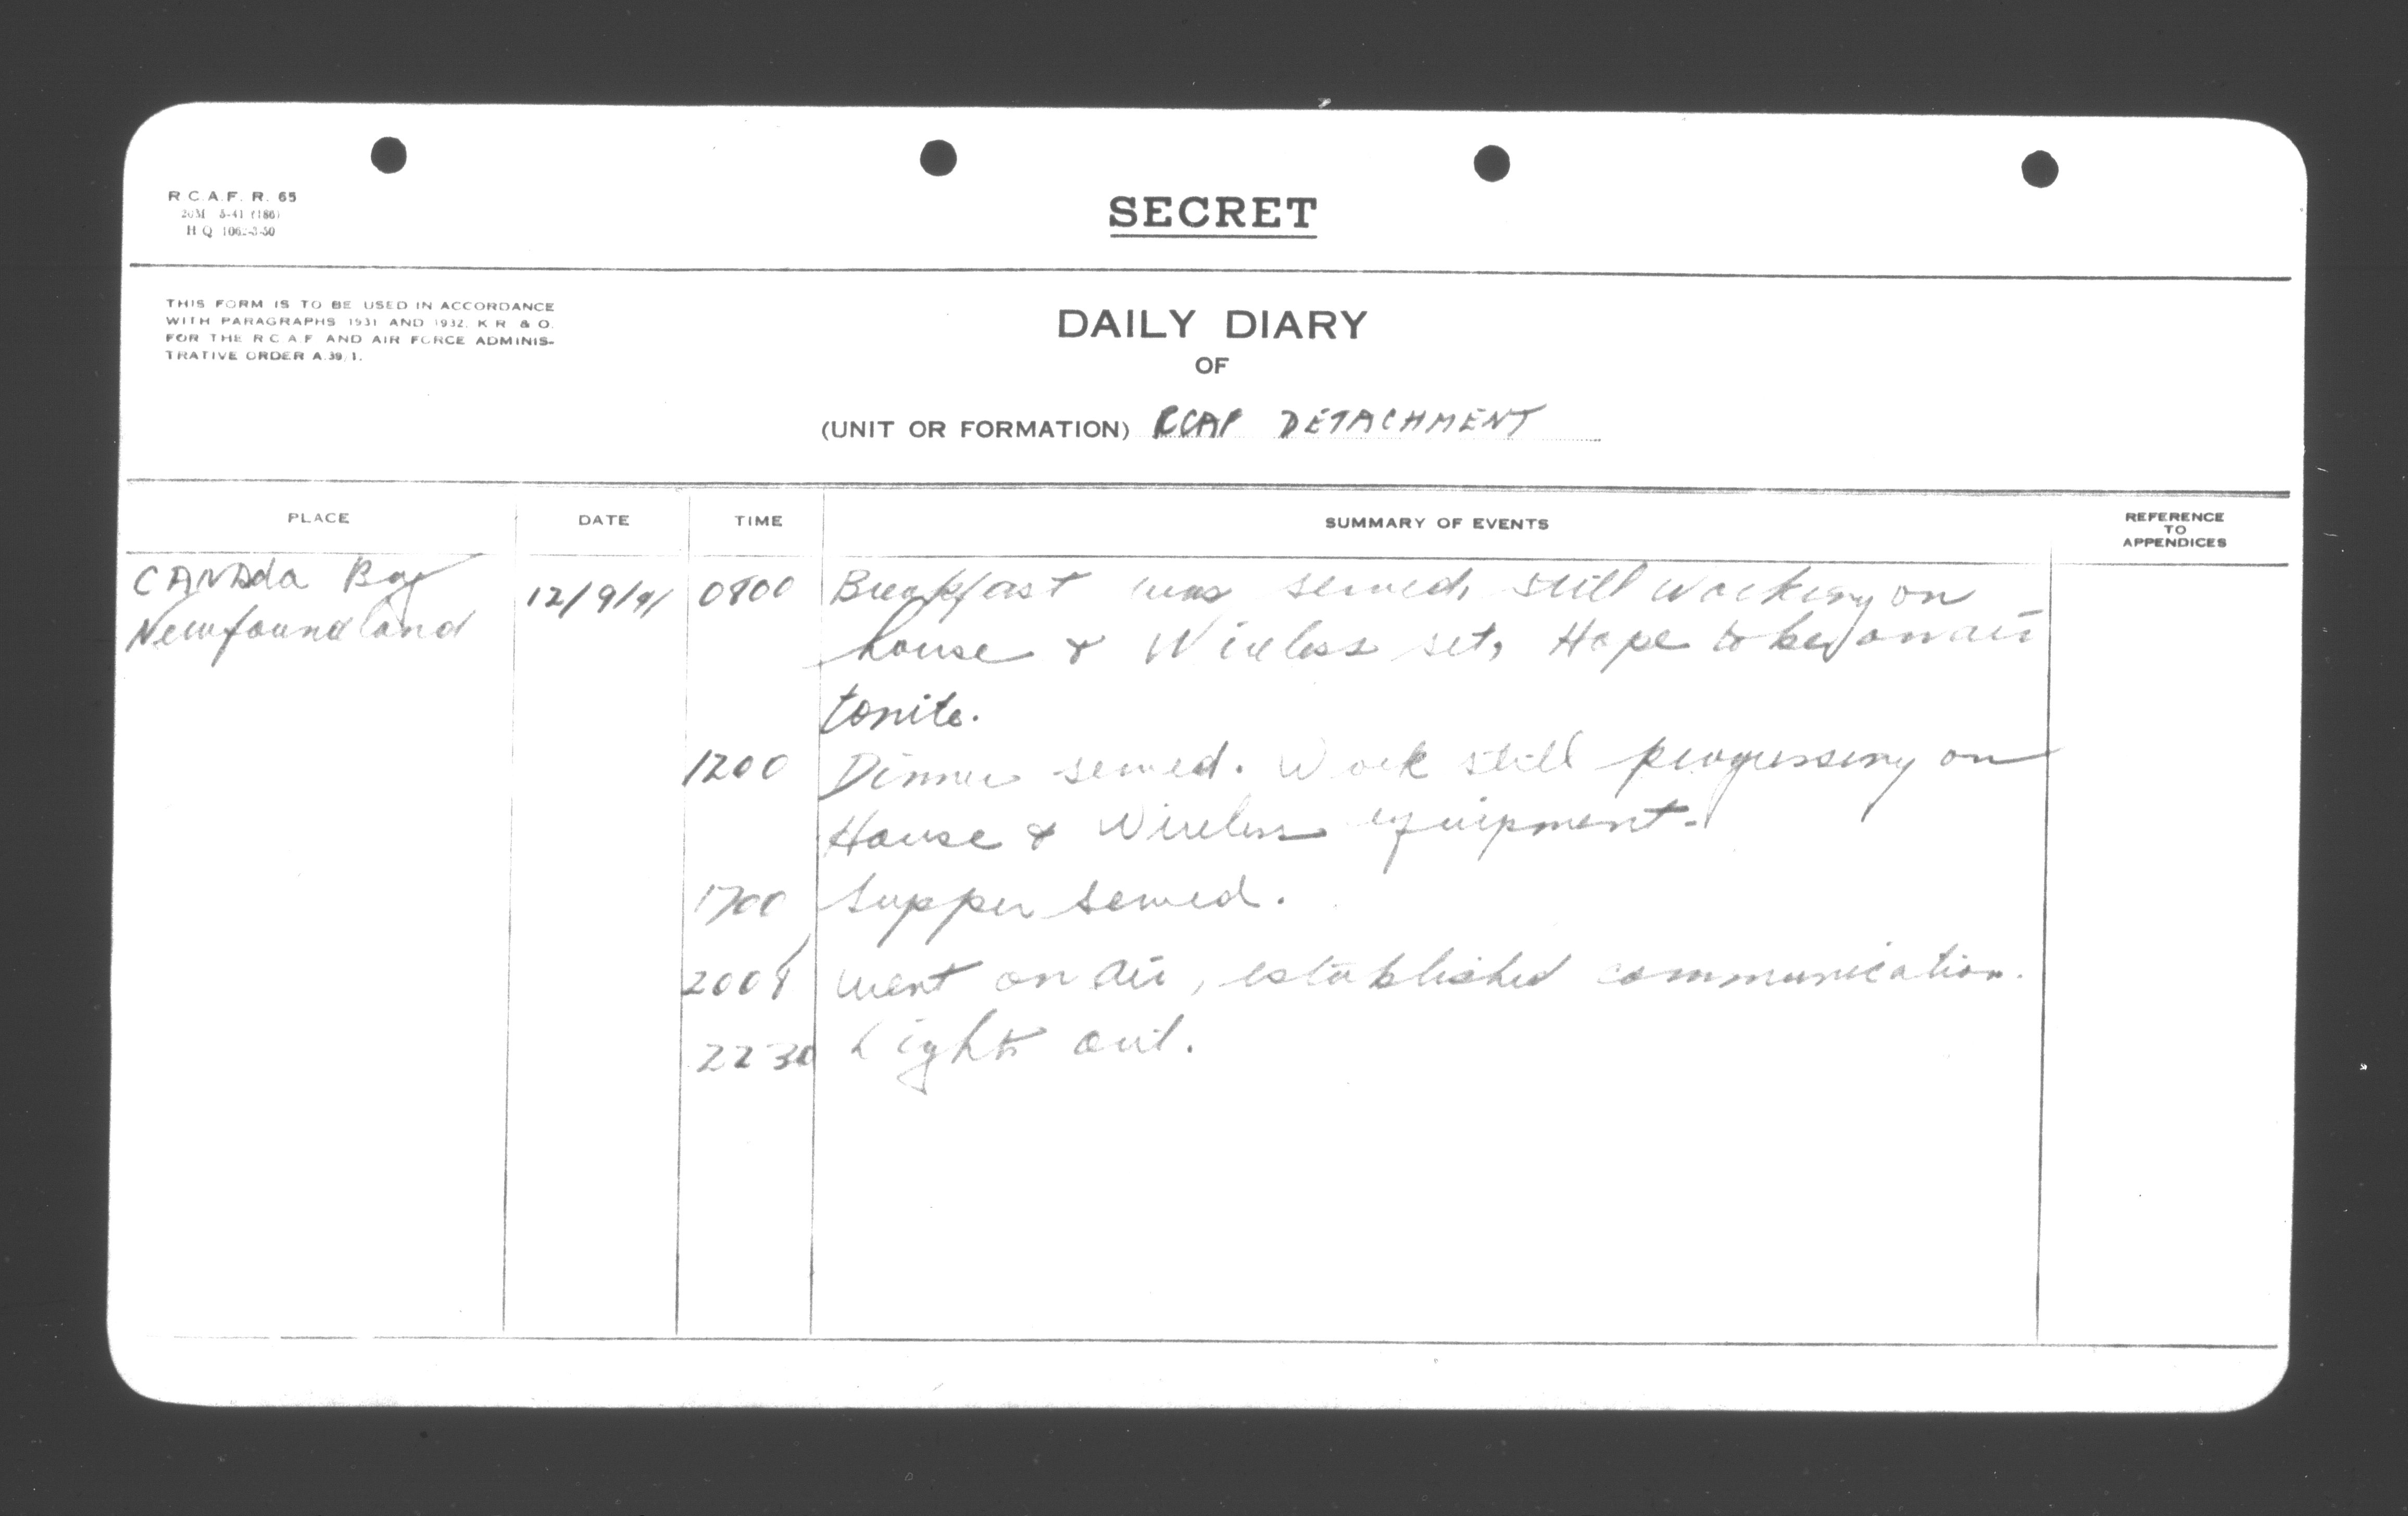 R.C.A.F. R. 65
20M 5-41 (186)
H Q 1062-3-50
SECRET
THIS FORM IS TO BE USED IN ACCORDANCE
WITH PARAGRAPHS 1931 AND 1932. K R & O.
FOR THE R C A F AND AIR FORCE ADMINIS-
TRATIVE ORDER A.39/1.
DAILY DIARY
OF
(UNIT OR FORMATION) RCAF DETACHMENT
PLACE DATE TIME SUMMARY OF EVENTS REFERENCE TO APPENDICES
CANADA Bay 12/9/41 0800 Breakfast was served, still working on
Newfoundland house & Wireless set, Hope to be on air
tonite.
1200 Dinner served. Work still progressing on
House & Wireless equipment.
1700 Supper served.
2008 Went on air, established communication.
2230 Lights out.